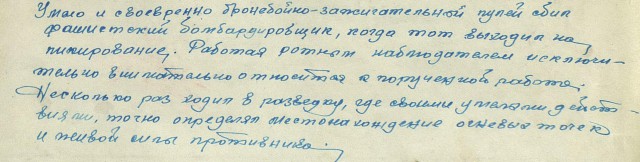 Умело и своевренно бронебойно-зажигательной пулей сбил
фашистский бомбардировщик, когда тот выходил на
пикирование. Работая ротным наблюдателем исключи-
тельно внимательно относится к порученной работе.
Несколько раз ходил в разведку, где своими умелыми дейст-
виями, точно определял местонахождение огневых точек
и живой силы противника.